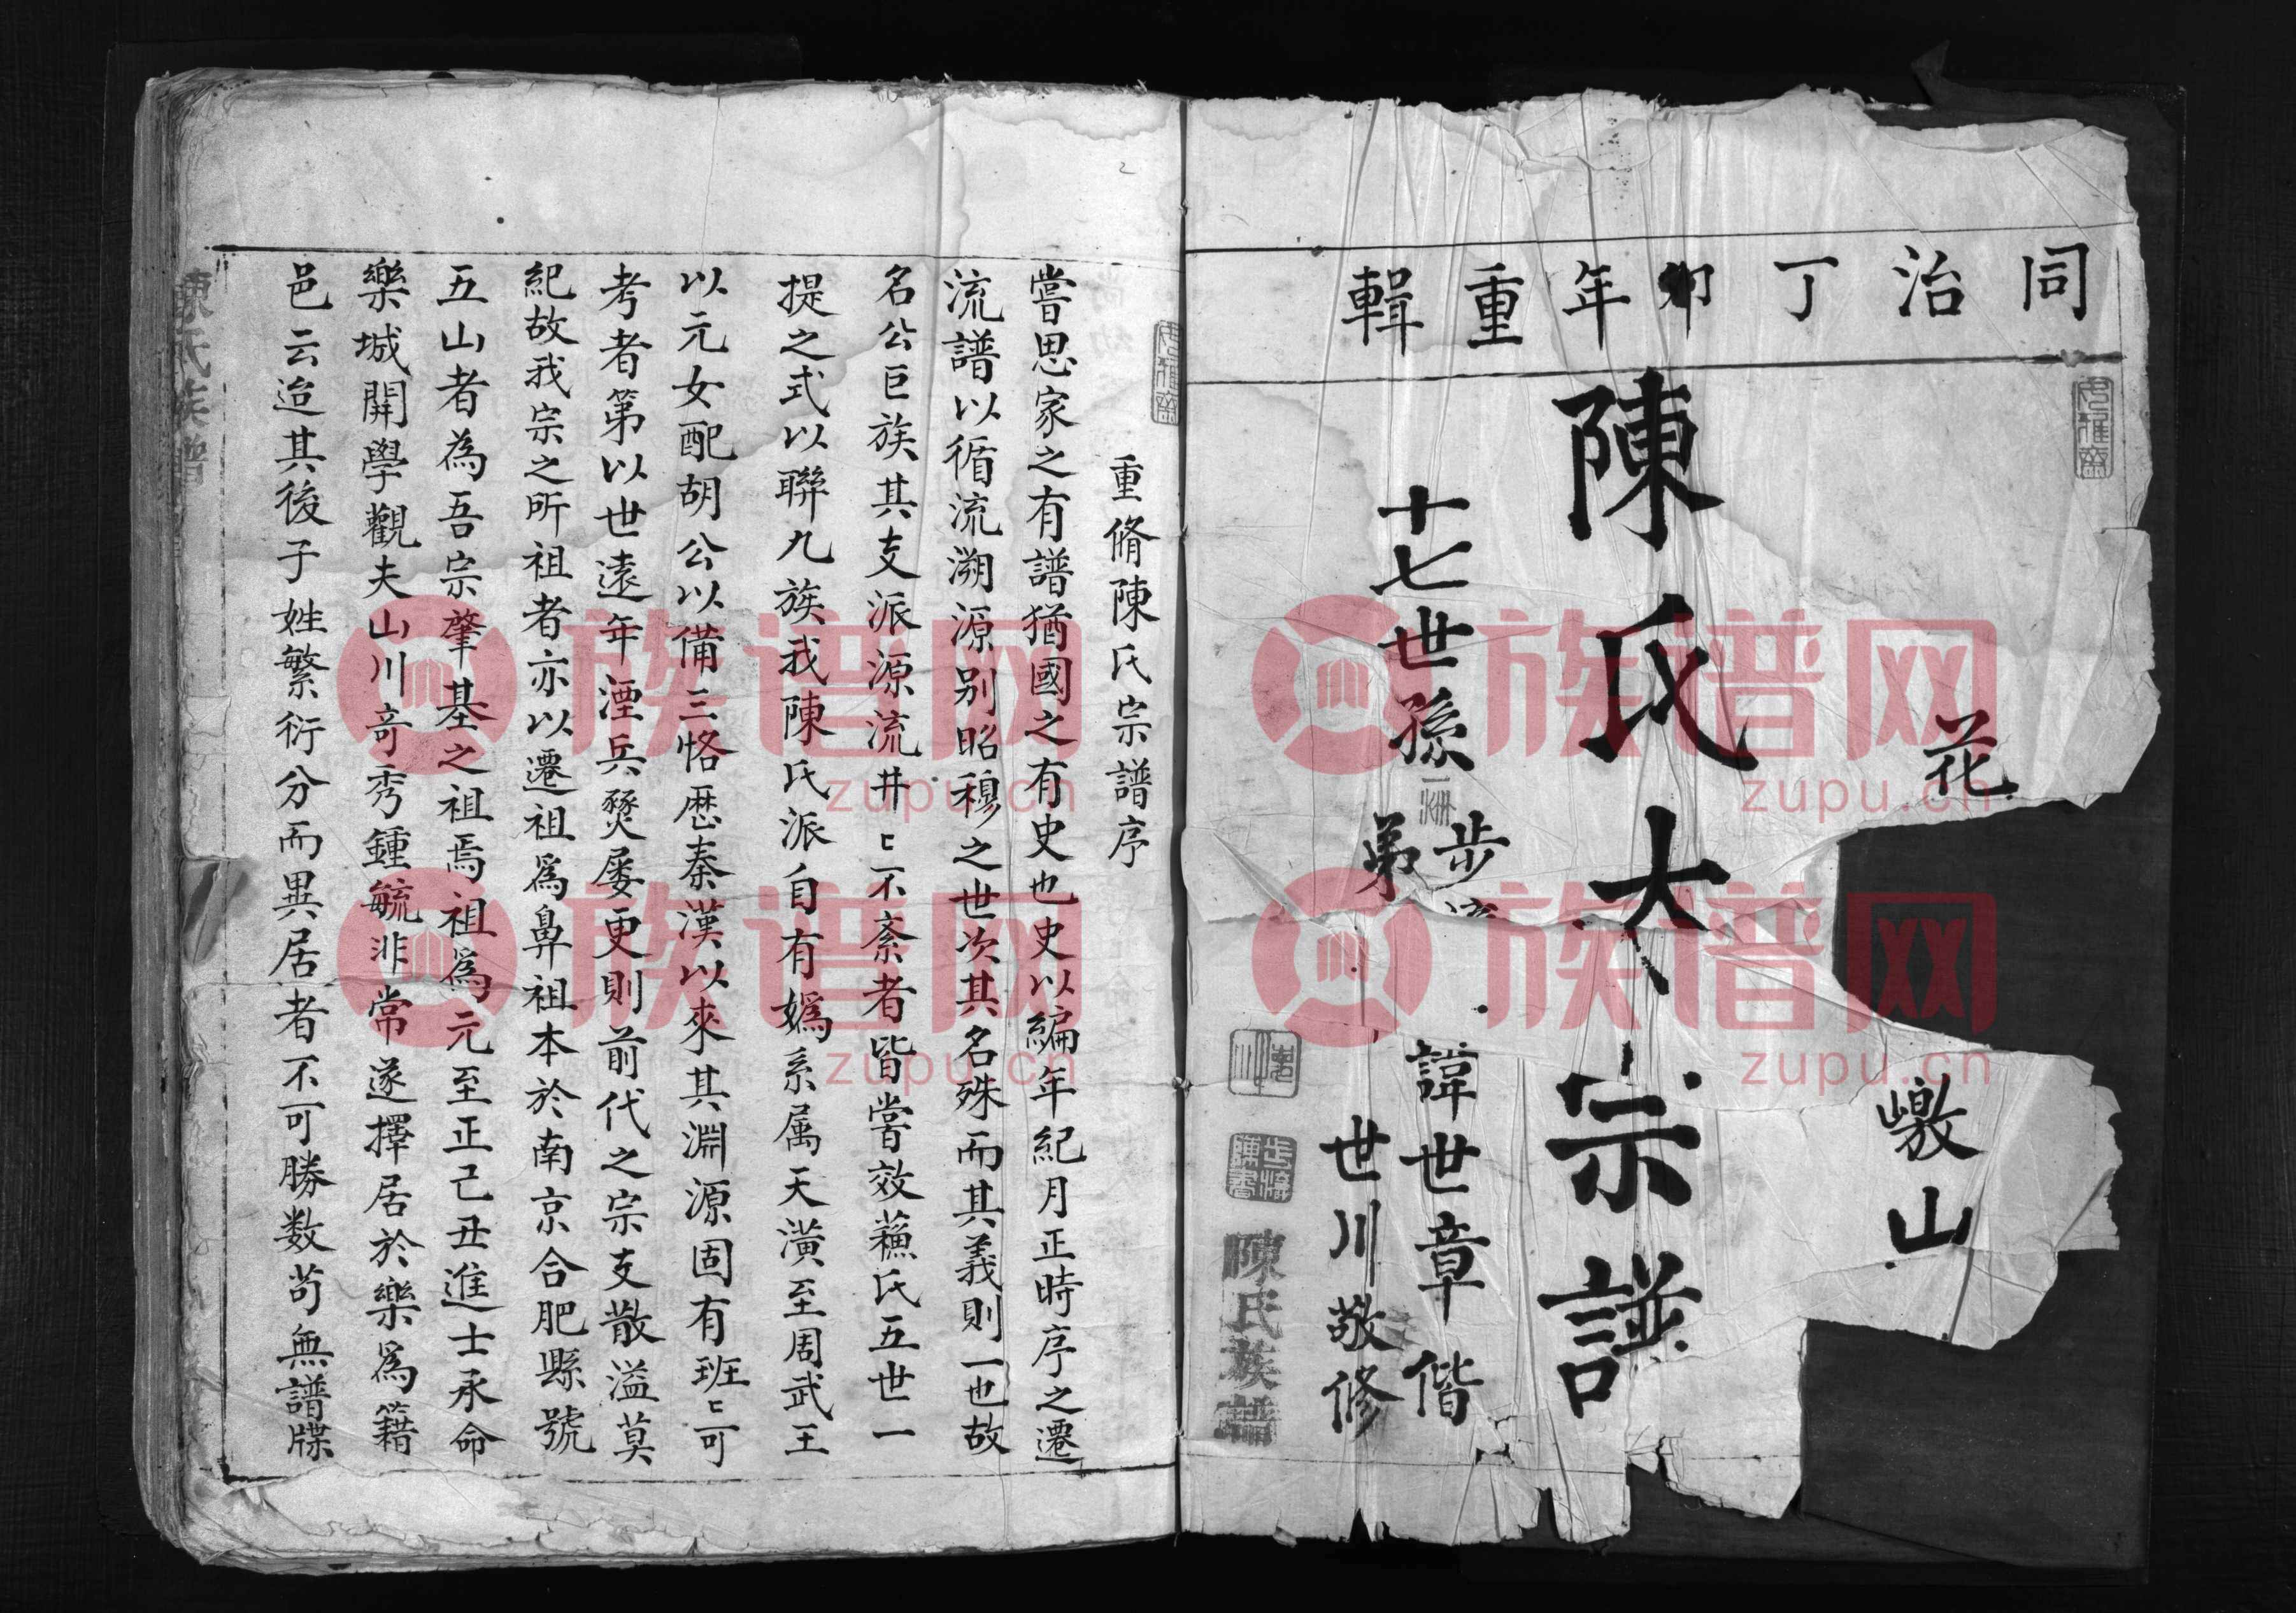 同治丁卯年重輯
花
嶔山
陳氏大宗譜
十七世孫
步
弟
諱世章偕
世川敬修
陳氏族譜
重脩陳氏宗譜序
嘗思家之有譜猶國之有史也史以編年紀月正時序之遷
流譜以循流溯源别昭穆之世次其名殊而其義則一也故
名公巨族其支派源流井〻不紊者皆嘗效蘓氏五世一
提之式以聯九族我陳氏派自有媯系属天潢至周武王
以元女配胡公以備三恪歴秦漢以來其淵源固有班〻可
考者第以世遠年湮兵燹屡更則前代之宗支散溢莫
紀故我宗之所祖者亦以遷祖爲鼻祖本於南京合肥縣號
五山者為吾宗肇基之祖焉祖爲元至正己丑進士承命
樂城開學觀夫山川竒秀鍾毓非常遂擇居於樂爲籍
邑云迨其後子姓繁衍分而異居者不可勝数苟無譜牒
陳氏族譜
族谱网
zupu.cn
族谱网
zupu.cn
族谱网
zupu.cn
族谱网
zupu.cn